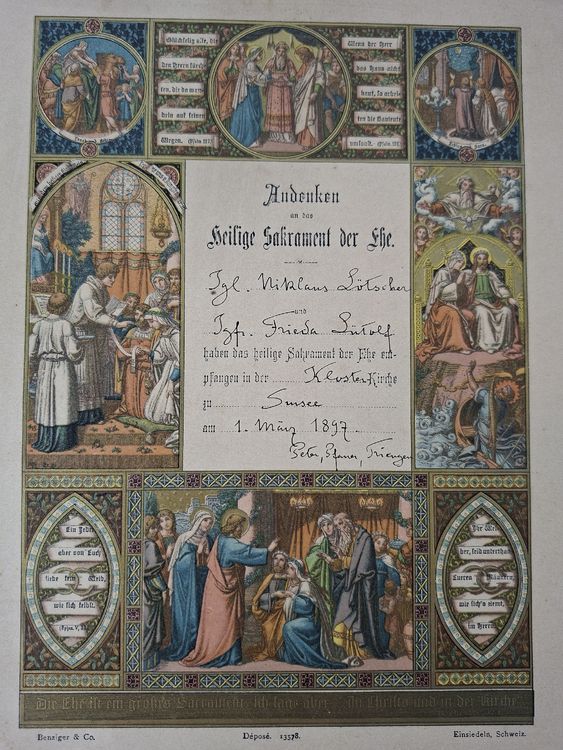 Glückselig alle, die
den Herrn fürch-
ten, die da wan-
deln auf seinen
Wegen. (Psalm 127.)
Wenn der Herr
das Haus nicht
baut, so arbei-
ten die Bauleute
umsonst. (Psalm 126.)
Andenken
an das
Heilige Sakrament der Ehe.
Jgl. Niklaus Lötscher
und
Jgfr. Frieda Lütolf
haben das heilige Sakrament der Ehe em-
pfangen in der Kloster Kirche
zu Sursee
am 1. März 1897.
Peter, Pfarrer, Triengen
Ein Jeder
aber von Euch
liebe sein Weib,
wie sich selbst.
Ihr Wei-
ber, seid unterthan
Eueren Männern,
wie sich's ziemt,
im Herrn.
Die Ehe ist ein großes Sacrament, Ich sage aber: In Christo und in der Kirche
Benziger & Co. Déposé. 13578. Einsiedeln, Schweiz.